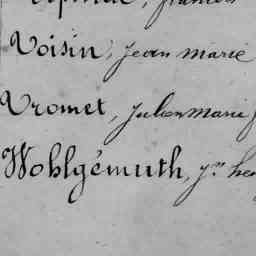 Voisin, Jean marie
Vromet, Julien Marie
Wohlgémuth, Jn hen